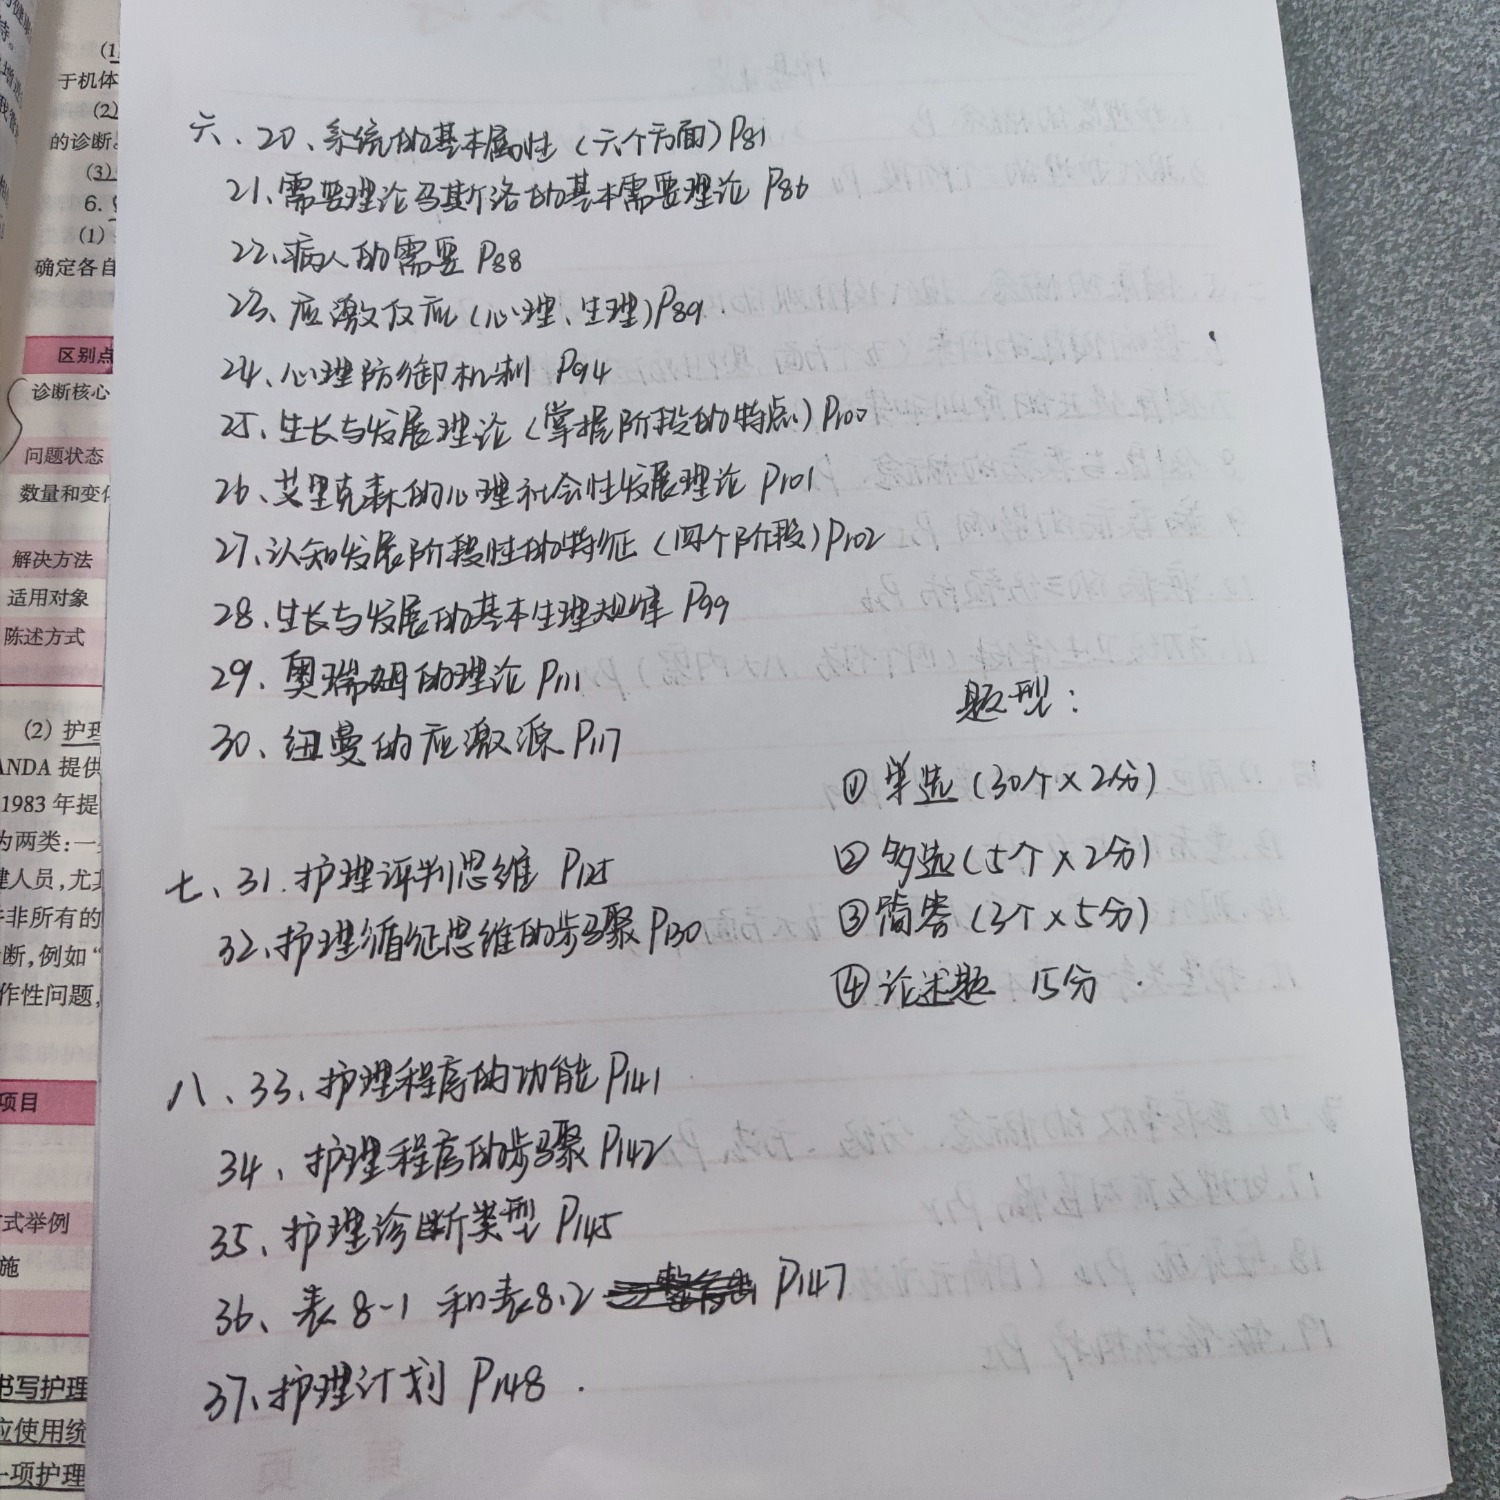 六、20、系统的基本属性(六个方面)P81
21、需要理论马斯洛的基本需要理论 P86
22、病人的需要 P88
23、应激反应(心理、生理)P89
24、心理防御机制 P94
25、生长与发展理论(掌握阶段的特点)P100
26、艾里克森的心理社会性发展理论 P101
27、认知发展阶段性的特征(四个阶段)P102
28、生长与发展的基本生理规律 P99
29、奥瑞姆的理论 P111
30、纽曼的应激源 P117
七、31.护理评判思维 P125
32、护理循证思维的步骤 P130
八、33、护理程序的功能 P141
34、护理程序的步骤 P142
35、护理诊断类型 P145
36、表8-1 和表8.2 P147
37、护理计划 P148.
题型:
①单选(30个×2分)
②多选(5个×2分)
③简答(3个×5分)
④论述题 15分
(1)
于机体
(2)
的诊断
(3)
6.
(1)
确定各自
区别点
诊断核心
问题状态
数量和变化
解决方法
适用对象
陈述方式
(2) 护理
ANDA 提供
1983 年提
为两类:一
健人员,尤其
非所有的
断,例如“
作性问题,
项目
式举例
施
书写护理
应使用统
一项护理